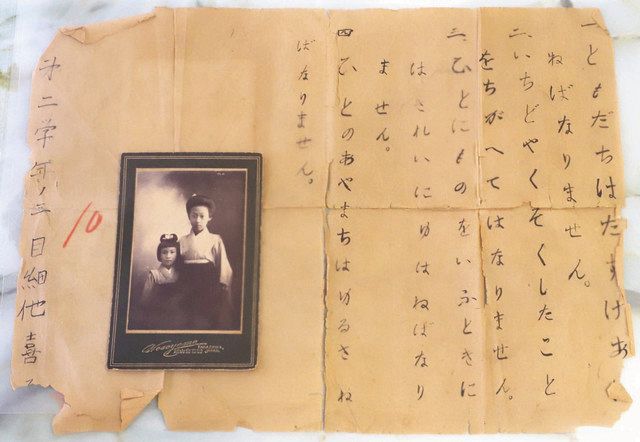 一ともだちはたすけあ
ねばなりません。
二いちどやくそくしたこと
をちがへてはなりません。
三ひとにものをいふときに
はきれいにゆはねばなり
ません。
四ひとのあやまちはゆるさね
ばなりません。
10
二学年ノ三目細他喜